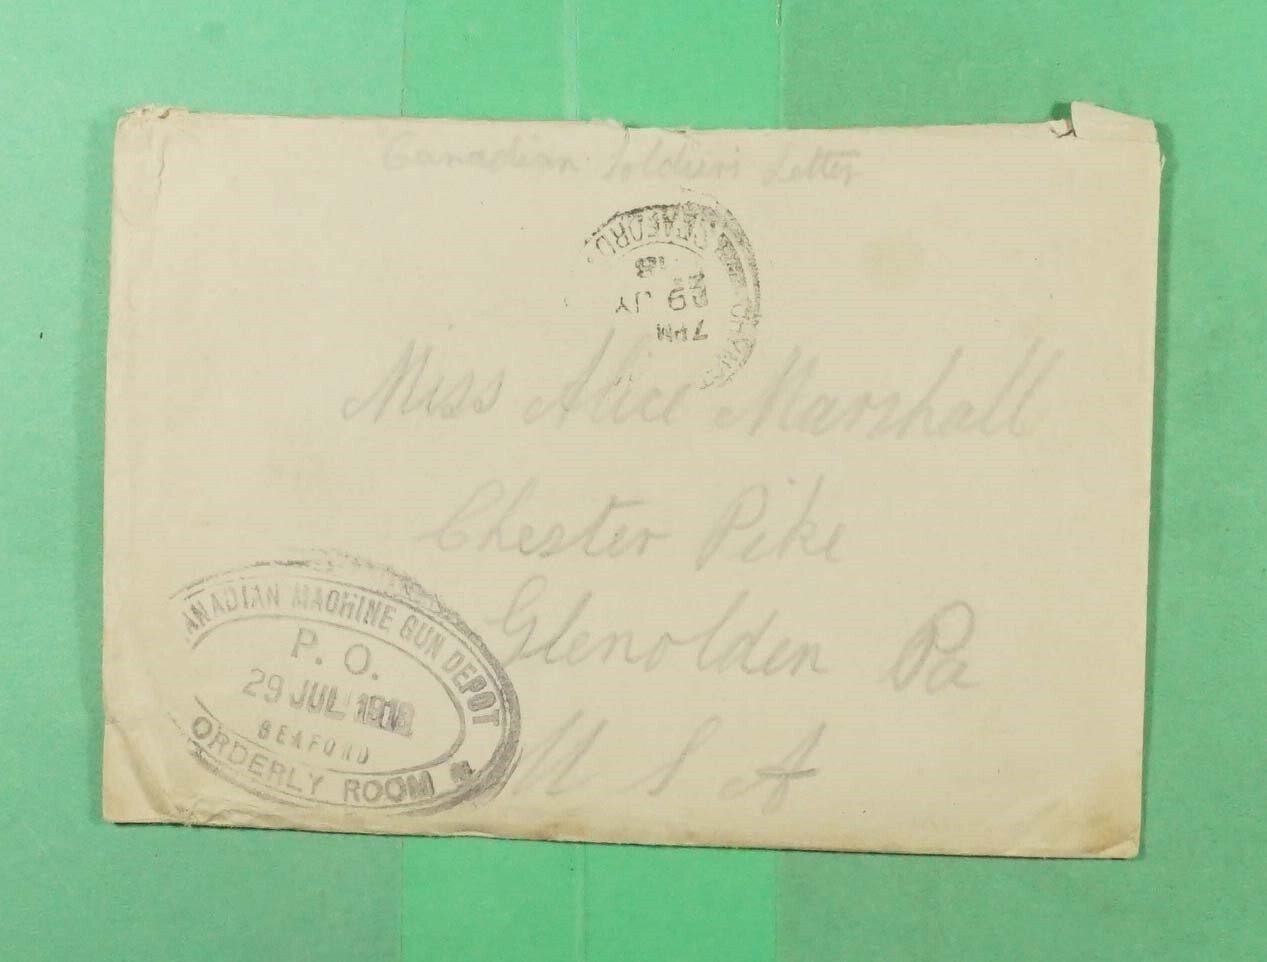 Canadian Soldiers Letter
SEAFORD
18
29 JY
7 PM
Miss Alice Marshall
Chester Pike
Glenolden Pa
U S A
CANADIAN MACHINE GUN DEPOT
P. O.
29 JUL 1918
SEAFORD
ORDERLY ROOM